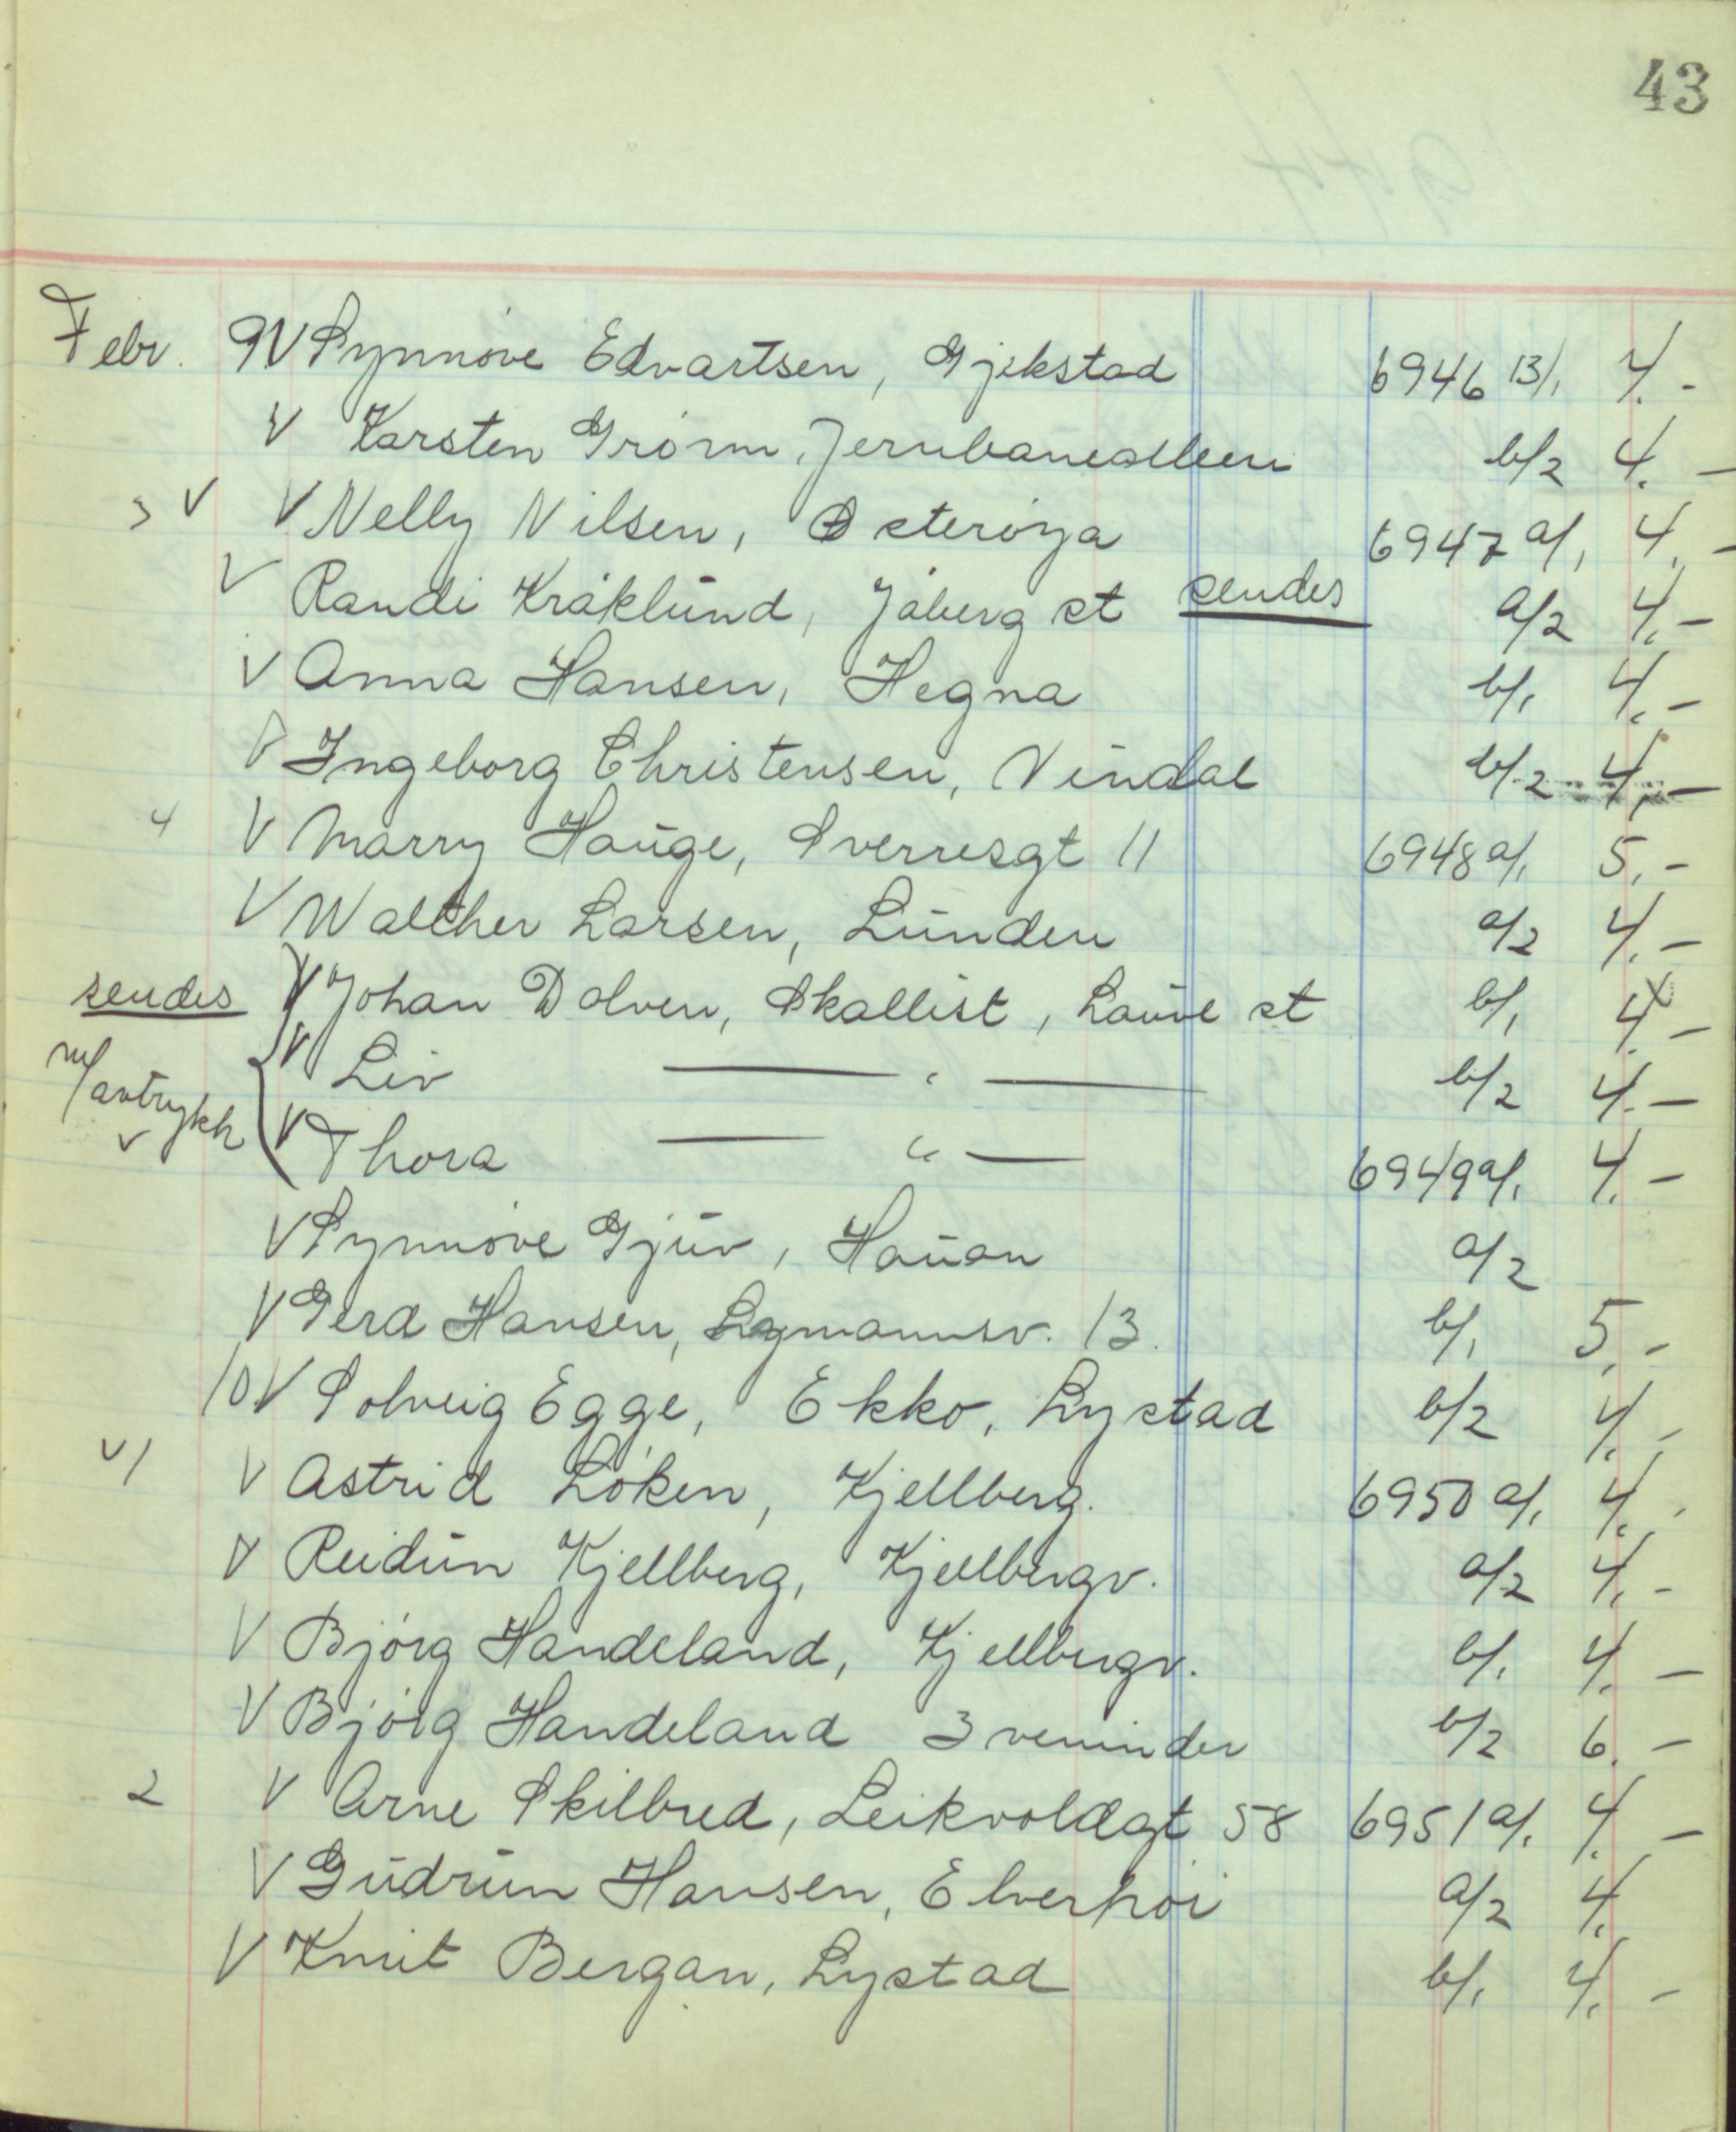 43
Febr. 9 V Synnøve Edvartsen, Gjekstad 6946 B/1 4.-
V Karsten Grorm, Jernbanealleen b/2 4.-
3 V V Nelly Nilsen, Østerøya 6947 a/1 4.-
V Randi Kråklund, Jåberg st sendes a/2 4.-
V Anna Hansen, Hegna b/1 4.-
V Ingeborg Christensen, Vindal b/2 4.-
4 V Marry Hauge, Sverresgt 11 6948 a/1 5.-
V Walther Larsen, Lunden a/2 4.-
sendes V Johan Dolven, Skallist, Lauve st b/1 4.-
m/avtrykk V Liv — " — b/2 4.-
V V Thora — " — 6949 a/1 4.-
V Synnøve Gjuv, Hauan a/2
V Gerd Hansen, Lagmannsv. 13. b/1 5.-
10 V Solveig Egge, Ekko, Lystad b/2 4.-
V 1 V Astrid Løken, Kjellberg. 6950 a/1 4.-
V Reidun Kjellberg, Kjellbergv. a/2 4.-
V Bjørg Handeland, Kjellbergv. b/1 4.-
V Bjørg Handeland 3 veninder b/2 6.-
2 V Arne Skilbred, Leikvoldgt 58 6951 a/1 4.-
V Gudrun Hansen, Elverhøi a/2 4.
V Knut Bergan, Lystad b/1 4.-